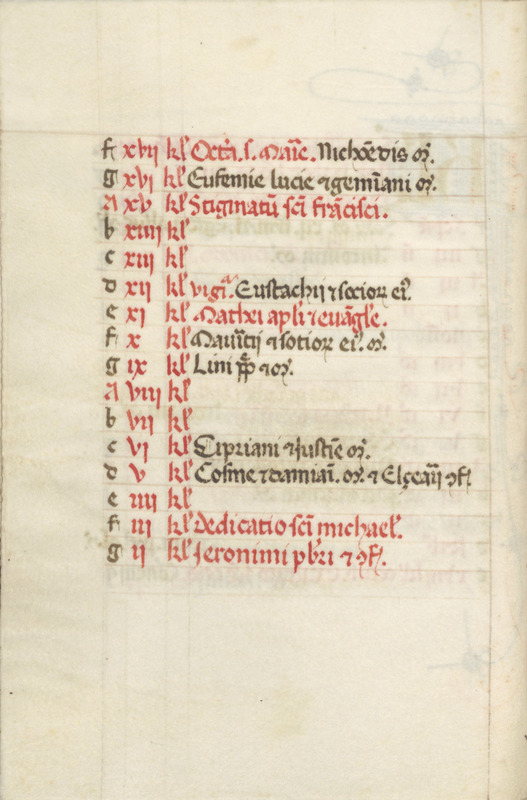 f xvii kl' Octa. s. Marie. Nichoedis mr.
g xvi kl' Eufemie lucie ⁊ geminiani mr.
A xv kl' Stigmatū sci francisci.
b xiiii kl'
c xiii kl'
d xii kl' vigia. Eustachii ⁊ socior ei.
e xi kl' Mathei apli ⁊ euāgle.
f x kl' Mauritii ⁊ sotior ei. mr.
g ix kl' Lini pp ⁊ mr.
A viii kl'
b vii kl'
c vi kl' Cipriani ⁊ Justīe mr.
d v kl' Cosme ⁊ damiāi. mr. ⁊ Elçearii ɔf.
e iiii kl'
f iii kl' Dedicatio sci michael'.
g ii kl' Jeronimi pbri ⁊ ɔf.